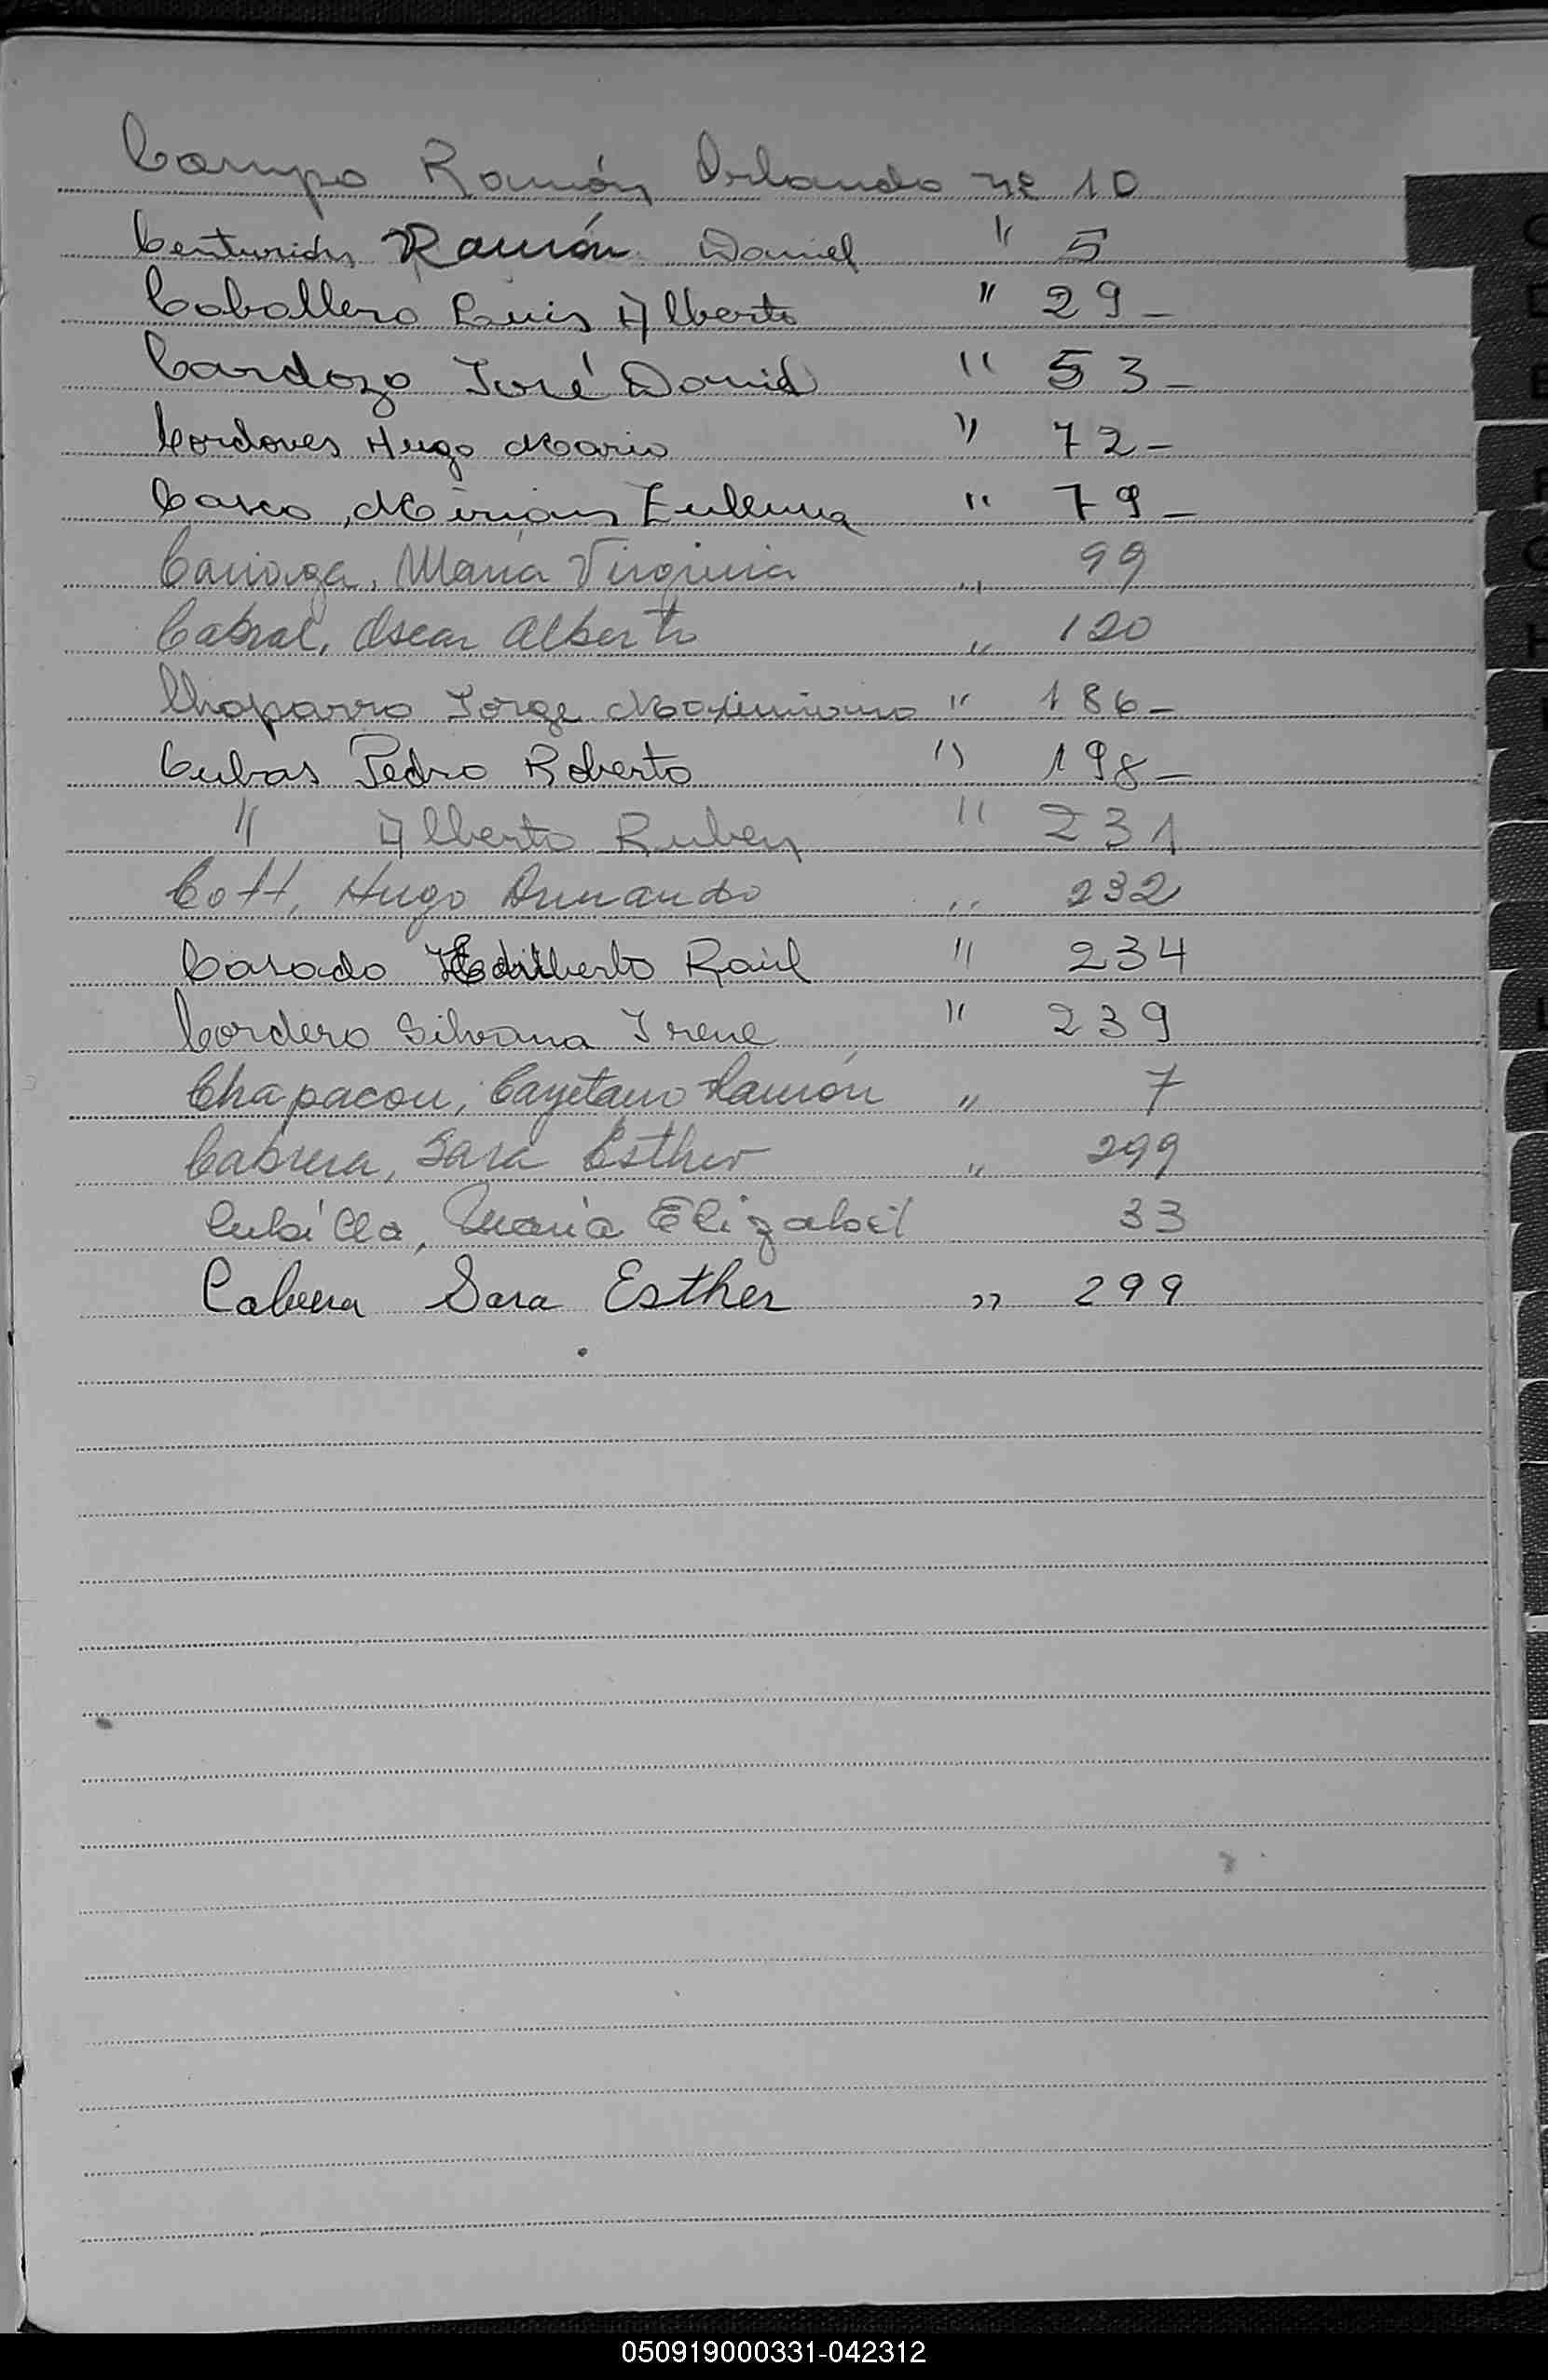 Campo Ramón Orlando nº 10
Centurión Ramón Daniel " 5
Caballero Luis Alberto " 29-
Cardozo José David " 53-
Cordoves Hugo Mario " 72-
Casco, Mirian Zulema " 79-
Cariaga, María Virginia " 99
Cabral, Oscar Alberto " 120
Chaparro Jorge Maximiano " 186-
Cubas Pedro Roberto " 198-
" Alberto Ruben " 231
Cott, Hugo Armando " 232
Casado Edilberto Raúl " 234
Cordero Silvana Irene " 239
Chapacou, Cayetano Ramón " 7
Cabrera, Sara Esther " 299
Cubilla, María Elizabet 33
Cabrera Sara Esther " 299
C
D
E
F
G
H
L
050919000331-042312